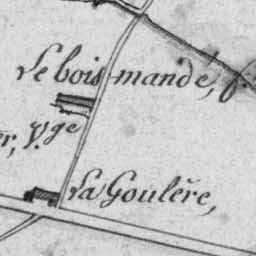 Le bois mande, f.
er, p.ge
La Goulère,